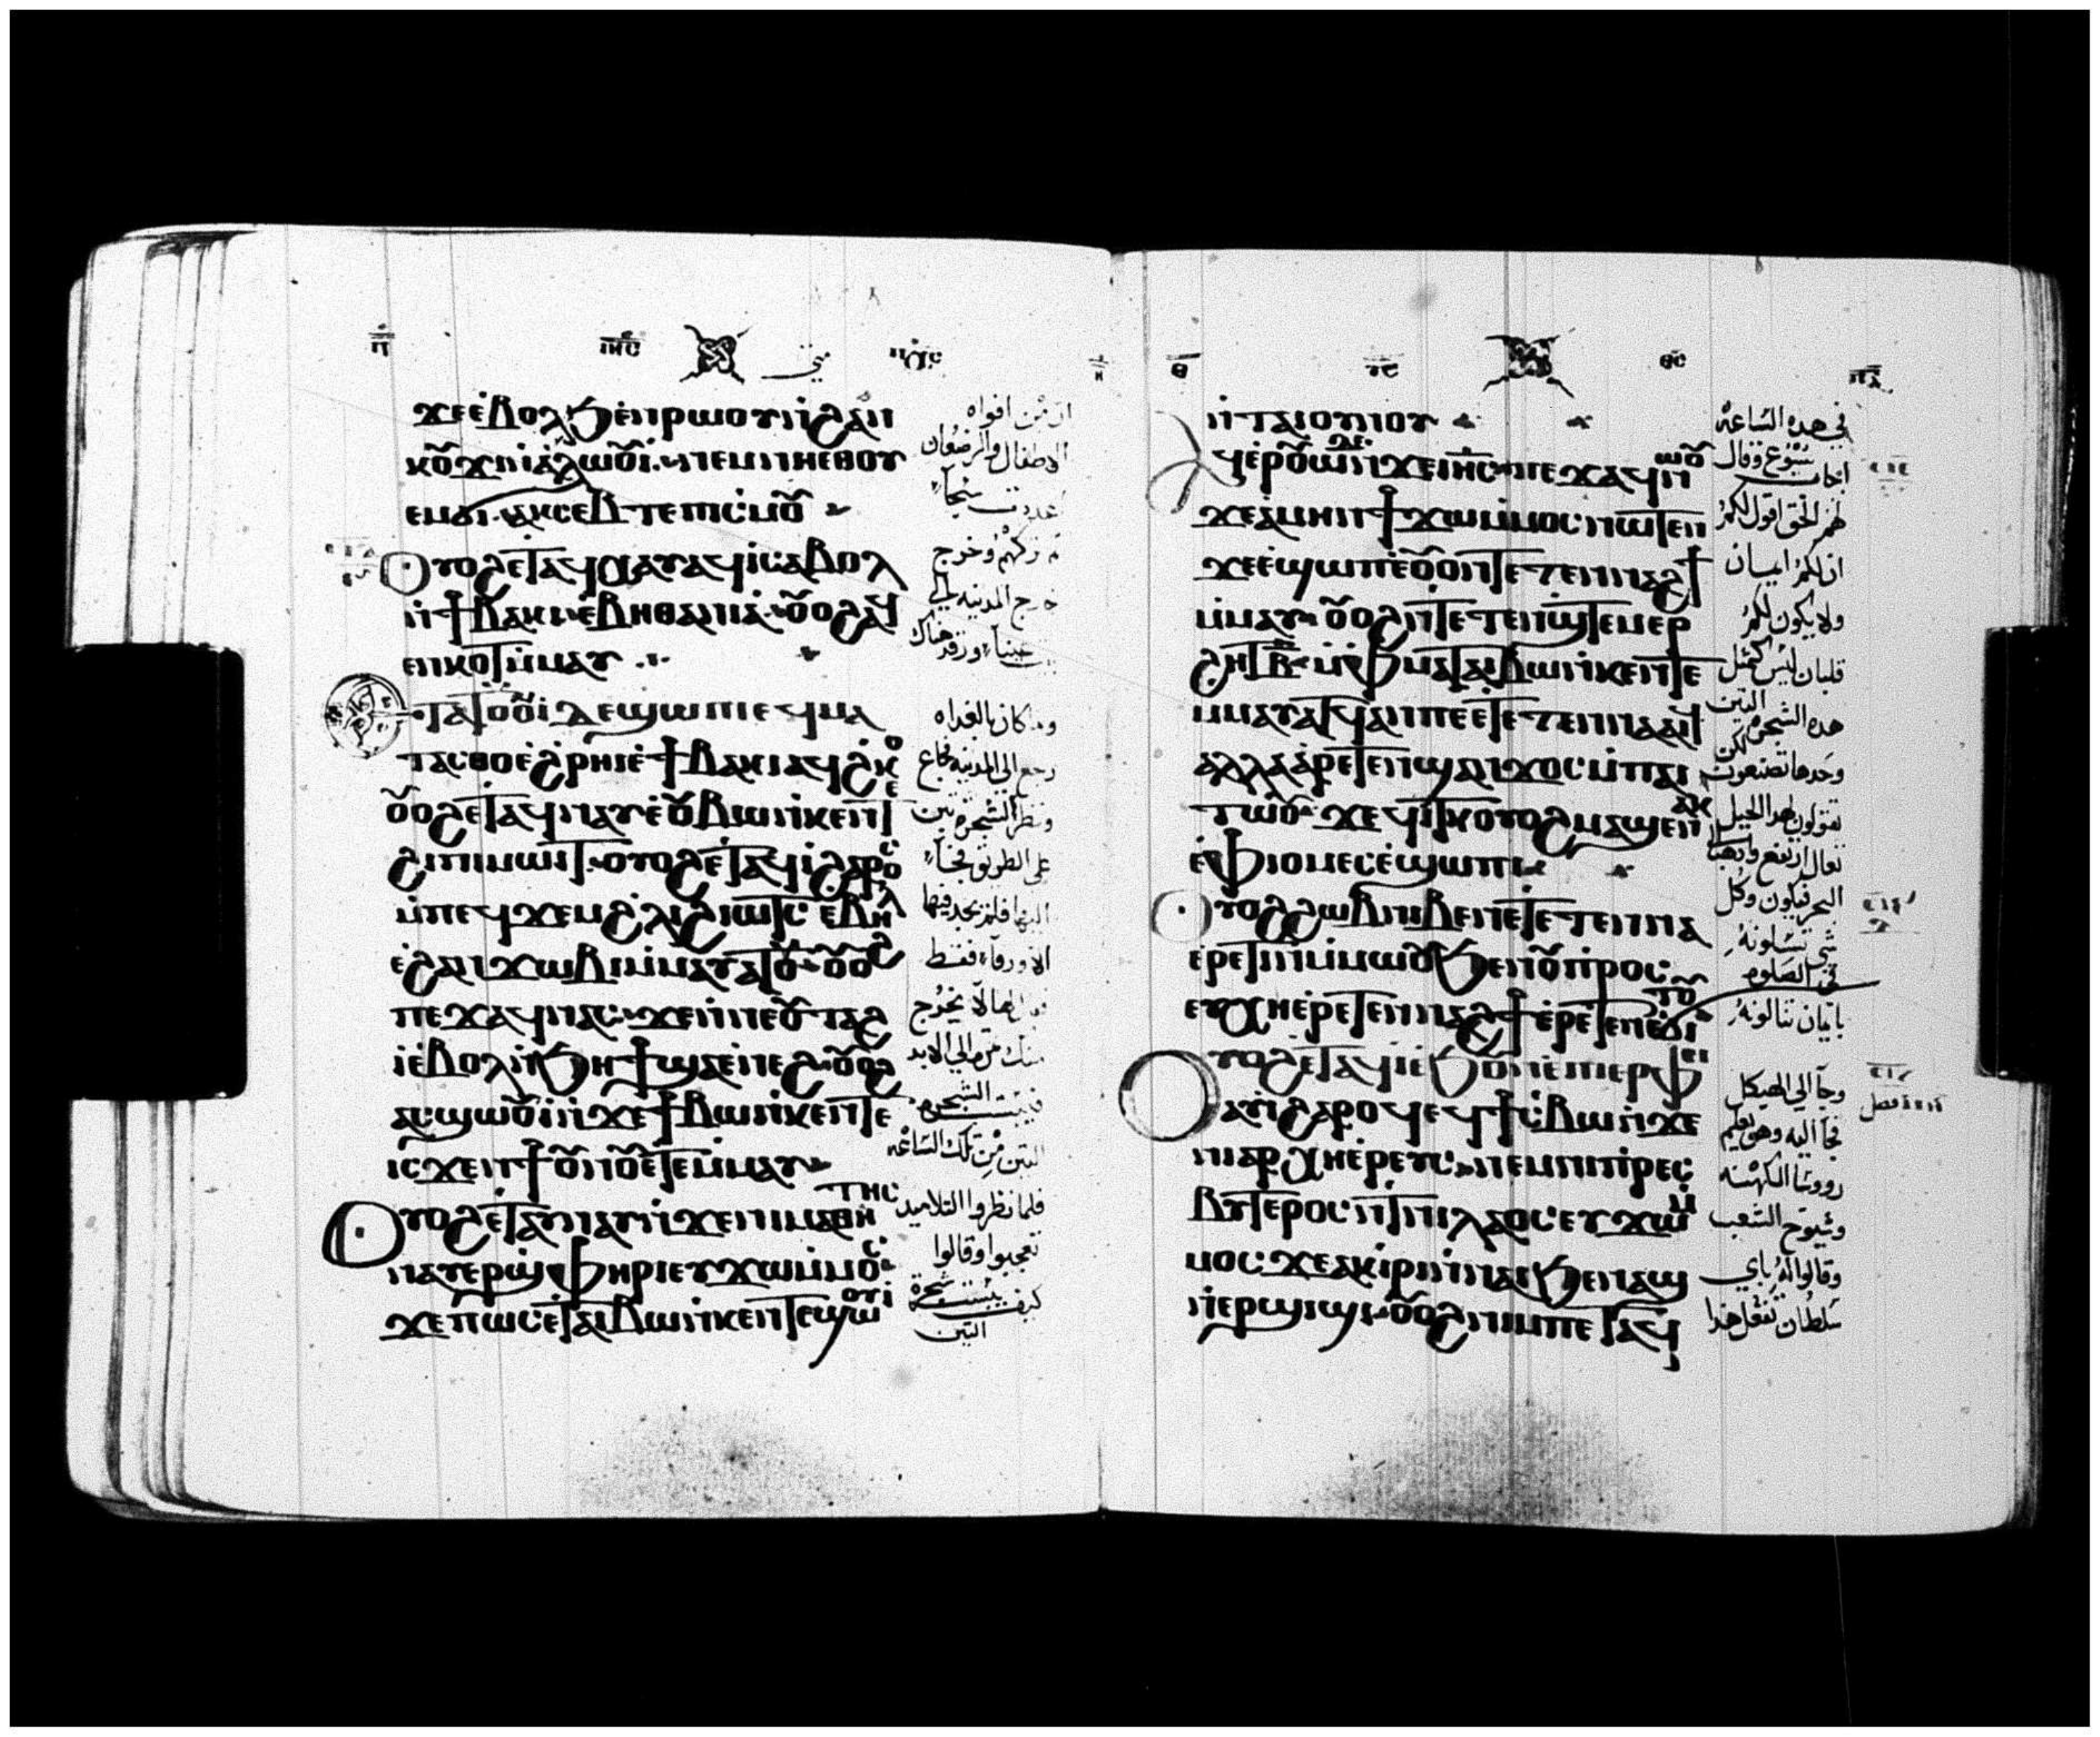 ϫⲉ ⲉ̀ⲃⲟⲗ ϧⲉⲛ ⲣⲱⲟⲩ ⲛ̀ϩⲁⲛ
ⲕⲟⲩϫⲓ ⲛ̀ⲁⲗⲱⲟⲩⲓ̀ ⲛⲉⲙ ⲛⲏⲉⲑⲟⲩ
ⲉⲙϭⲓ ⲁⲕⲥⲉⲃⲧⲉ ⲡⲓⲥ̀ⲙⲟⲩ
ⲟⲩⲟϩ ⲉⲧⲁϥⲭⲁⲩ ⲁϥⲓ̀ ⲥⲁⲃⲟⲗ
ⲛ̀ϯⲃⲁⲕⲓ ⲉ̀ⲃⲏⲑⲁⲛⲓⲁ ⲟⲩⲟϩ ⲁϥ
ⲉⲛⲕⲟⲧ ⲙ̀ⲙⲁⲩ
ⲧⲁⲧⲟⲟⲩⲓ̀ ⲇⲉ ϣⲱⲡⲓ ⲉϥⲛⲁ
ⲧⲁⲥⲑⲟ ⲉ̀ϩⲣⲏⲓ ⲉ̀ϯⲃⲁⲕⲓ ⲁϥϩⲕⲟ
ⲟⲩⲟϩ ⲉⲧⲁϥⲛⲁⲩ ⲉ̀ⲟⲩⲃⲱ ⲛ̀ⲕⲉⲛⲧⲉ
ϩⲓ ⲡⲓⲙⲱⲓⲧ ⲟⲩⲟϩ ⲉⲧⲁϥⲓ̀ ϩⲁⲣⲟⲥ
ⲙ̀ⲡⲉϥϫⲉⲙ ϩⲗⲓ ϩⲓⲱⲧⲥ ⲉⲃⲏⲗ
ⲉ̀ϩⲁⲛϫⲱⲃⲓ ⲙ̀ⲙⲁⲩⲁⲧⲟⲩ ⲟⲩⲟϩ
ⲡⲉϫⲁϥ ⲛⲁⲥ ϫⲉ ⲛ̀ⲛⲉⲟⲩⲧⲁϩ
ⲓ̀ ⲉ̀ⲃⲟⲗ ⲛ̀ϧⲏϯ ϣⲁ ⲉ̀ⲛⲉϩ ⲟⲩⲟϩ
ⲁⲥϣⲱⲟⲩⲓ̀ ⲛ̀ϫⲉ ϯⲃⲱ ⲛ̀ⲕⲉⲛⲧⲉ
ⲓⲥϫⲉⲛ ϯⲟⲩⲛⲟⲩ ⲉⲧⲉⲙ̀ⲙⲁⲩ
ⲟⲩⲟϩ ⲉⲧⲁⲩⲛⲁⲩ ⲛ̀ϫⲉ ⲛⲓⲙⲁⲑⲏⲧⲏⲥ
ⲛⲁⲩⲉⲣϣ̀ⲫⲏⲣⲓ ⲉⲩϫⲱ ⲙ̀ⲙⲟⲥ
ϫⲉ ⲡⲱⲥ ⲉ̀ⲧⲁⲓⲃⲱ ⲛ̀ⲕⲉⲛⲧⲉ ϣⲱⲟⲩⲓ
ان من افواه
الاطفال والرضعان
اعددت سبحاً
ثم تركهم وخرج
خارج المدينه الي
بيت عنيا ورقد هناك
وما كان بالغداه
رجع الي المدينه فجاع
ونظر الشجرة تين
علي الطريق فجاً
اليها فلم يجد فيها
الا ورقا فقط
فقال لها لا يخرج
منك ثمرة الي الابد
فيبست الشجره
التين من تلك الساعه
فلما نظروا التلاميد
تعجبوا وقالوا
كيف يبست شجرة
التين
ⲛ̀ⲧⲁⲓⲟⲩⲛⲟⲩ
ⲁϥⲉⲣⲟⲩⲱ̀ ⲇⲉ ⲛ̀ϫⲉ ⲓⲏⲥ ⲡⲉϫⲁϥ ⲛⲱⲟⲩ
ϫⲉ ⲁ̀ⲙⲏⲛ ϯϫⲱ ⲙ̀ⲙⲟⲥ ⲛⲱⲧⲉⲛ
ϫⲉ ⲉ̀ϣⲱⲡ ⲉ̀ⲟⲩⲟⲛⲧⲉⲧⲉⲛ ⲛⲁϩϯ
ⲙ̀ⲙⲁⲩ ⲟⲩⲟϩ ⲛ̀ⲧⲉⲧⲉⲛϣ̀ⲧⲉⲙⲉⲣ
ϩⲏⲧ ⲃ̅ ⲙ̀ⲫⲙⲁ ⲧⲁⲓⲃⲱ ⲛ̀ⲕⲉⲛⲧⲉ
ⲙ̀ⲙⲁⲩⲁⲧⲥ ⲁⲛ ⲡⲉⲧⲉⲧⲉⲛⲛⲁⲁⲓⲥ
ⲁⲗⲗⲁ ⲁ̀ⲣⲉⲧⲉⲛϣⲁⲛϫⲟⲥ ⲙ̀ⲡⲁⲓ
ⲧⲱⲟⲩ ϫⲉ ϥⲓⲧⲕ ⲟⲩⲟϩ ⲙⲁϣⲉⲛⲁⲕ
ⲉ̀ⲫⲓⲟⲙ ⲉⲥⲉ̀ϣⲱⲡⲓ
ⲟⲩⲟϩ ϩⲱⲃ ⲛⲓⲃⲉⲛ ⲉⲧⲉⲧⲉⲛⲛⲁ
ⲉⲣⲉⲧⲓⲛ ⲙ̀ⲙⲱⲟⲩ ϧⲉⲛ ⲟⲩⲡ̀ⲣⲟⲥ
ⲉⲩⲭⲏ ⲉ̀ⲣⲉⲧⲉⲛⲛⲁϩϯ ⲉ̀ⲣⲉⲧⲉⲛⲉ̀ϭⲓⲧⲟⲩ
ⲟⲩⲟϩ ⲉⲧⲁϥⲓ̀ ⲉ̀ϧⲟⲩⲛ ⲉ̀ⲡⲓⲉⲣⲫⲉⲓ
ⲁⲩⲓ̀ ϩⲁⲣⲟϥ ⲉϥϯⲥ̀ⲃⲱ ⲛ̀ϫⲉ
ⲛⲓⲁⲣⲭⲏⲉ̀ⲣⲉⲩⲥ ⲛⲉⲙ ⲛⲓⲡ̀ⲣⲉⲥ
ⲃⲩⲧⲉⲣⲟⲥ ⲛ̀ⲧⲉ ⲡⲓⲗⲁⲟⲥ ⲉⲩϫⲱ ⲙ̀
ⲙⲟⲥ ϫⲉ ⲁⲕⲓⲣⲓ ⲛ̀ⲛⲁⲓ ϧⲉⲛ ⲁϣ
ⲛ̀ⲉⲣϣⲓϣⲓ ⲟⲩⲟϩ ⲛⲓⲙ ⲡⲉⲧⲁϥ
في هده الساعه
اجاب يسوع وقال
لهم الحق اقول لكم
ان لكم ايمان
ولا يكون لكم
قلبان ليس كمثل
هده الشجره التين
وحدها تصنعون لكن
تقولون لهدا الجبل
تعال ارتفع وادهب
البحر فيكون وكل
شي تسلونه
في الصلوه
بايمان تنالونه
وجاً الي الهيكل
فجاً اليه وهو يعلم
رووسا الكهنه
وشيوخ الشعب
وقالوا له باي
سلطان تفعل هدا